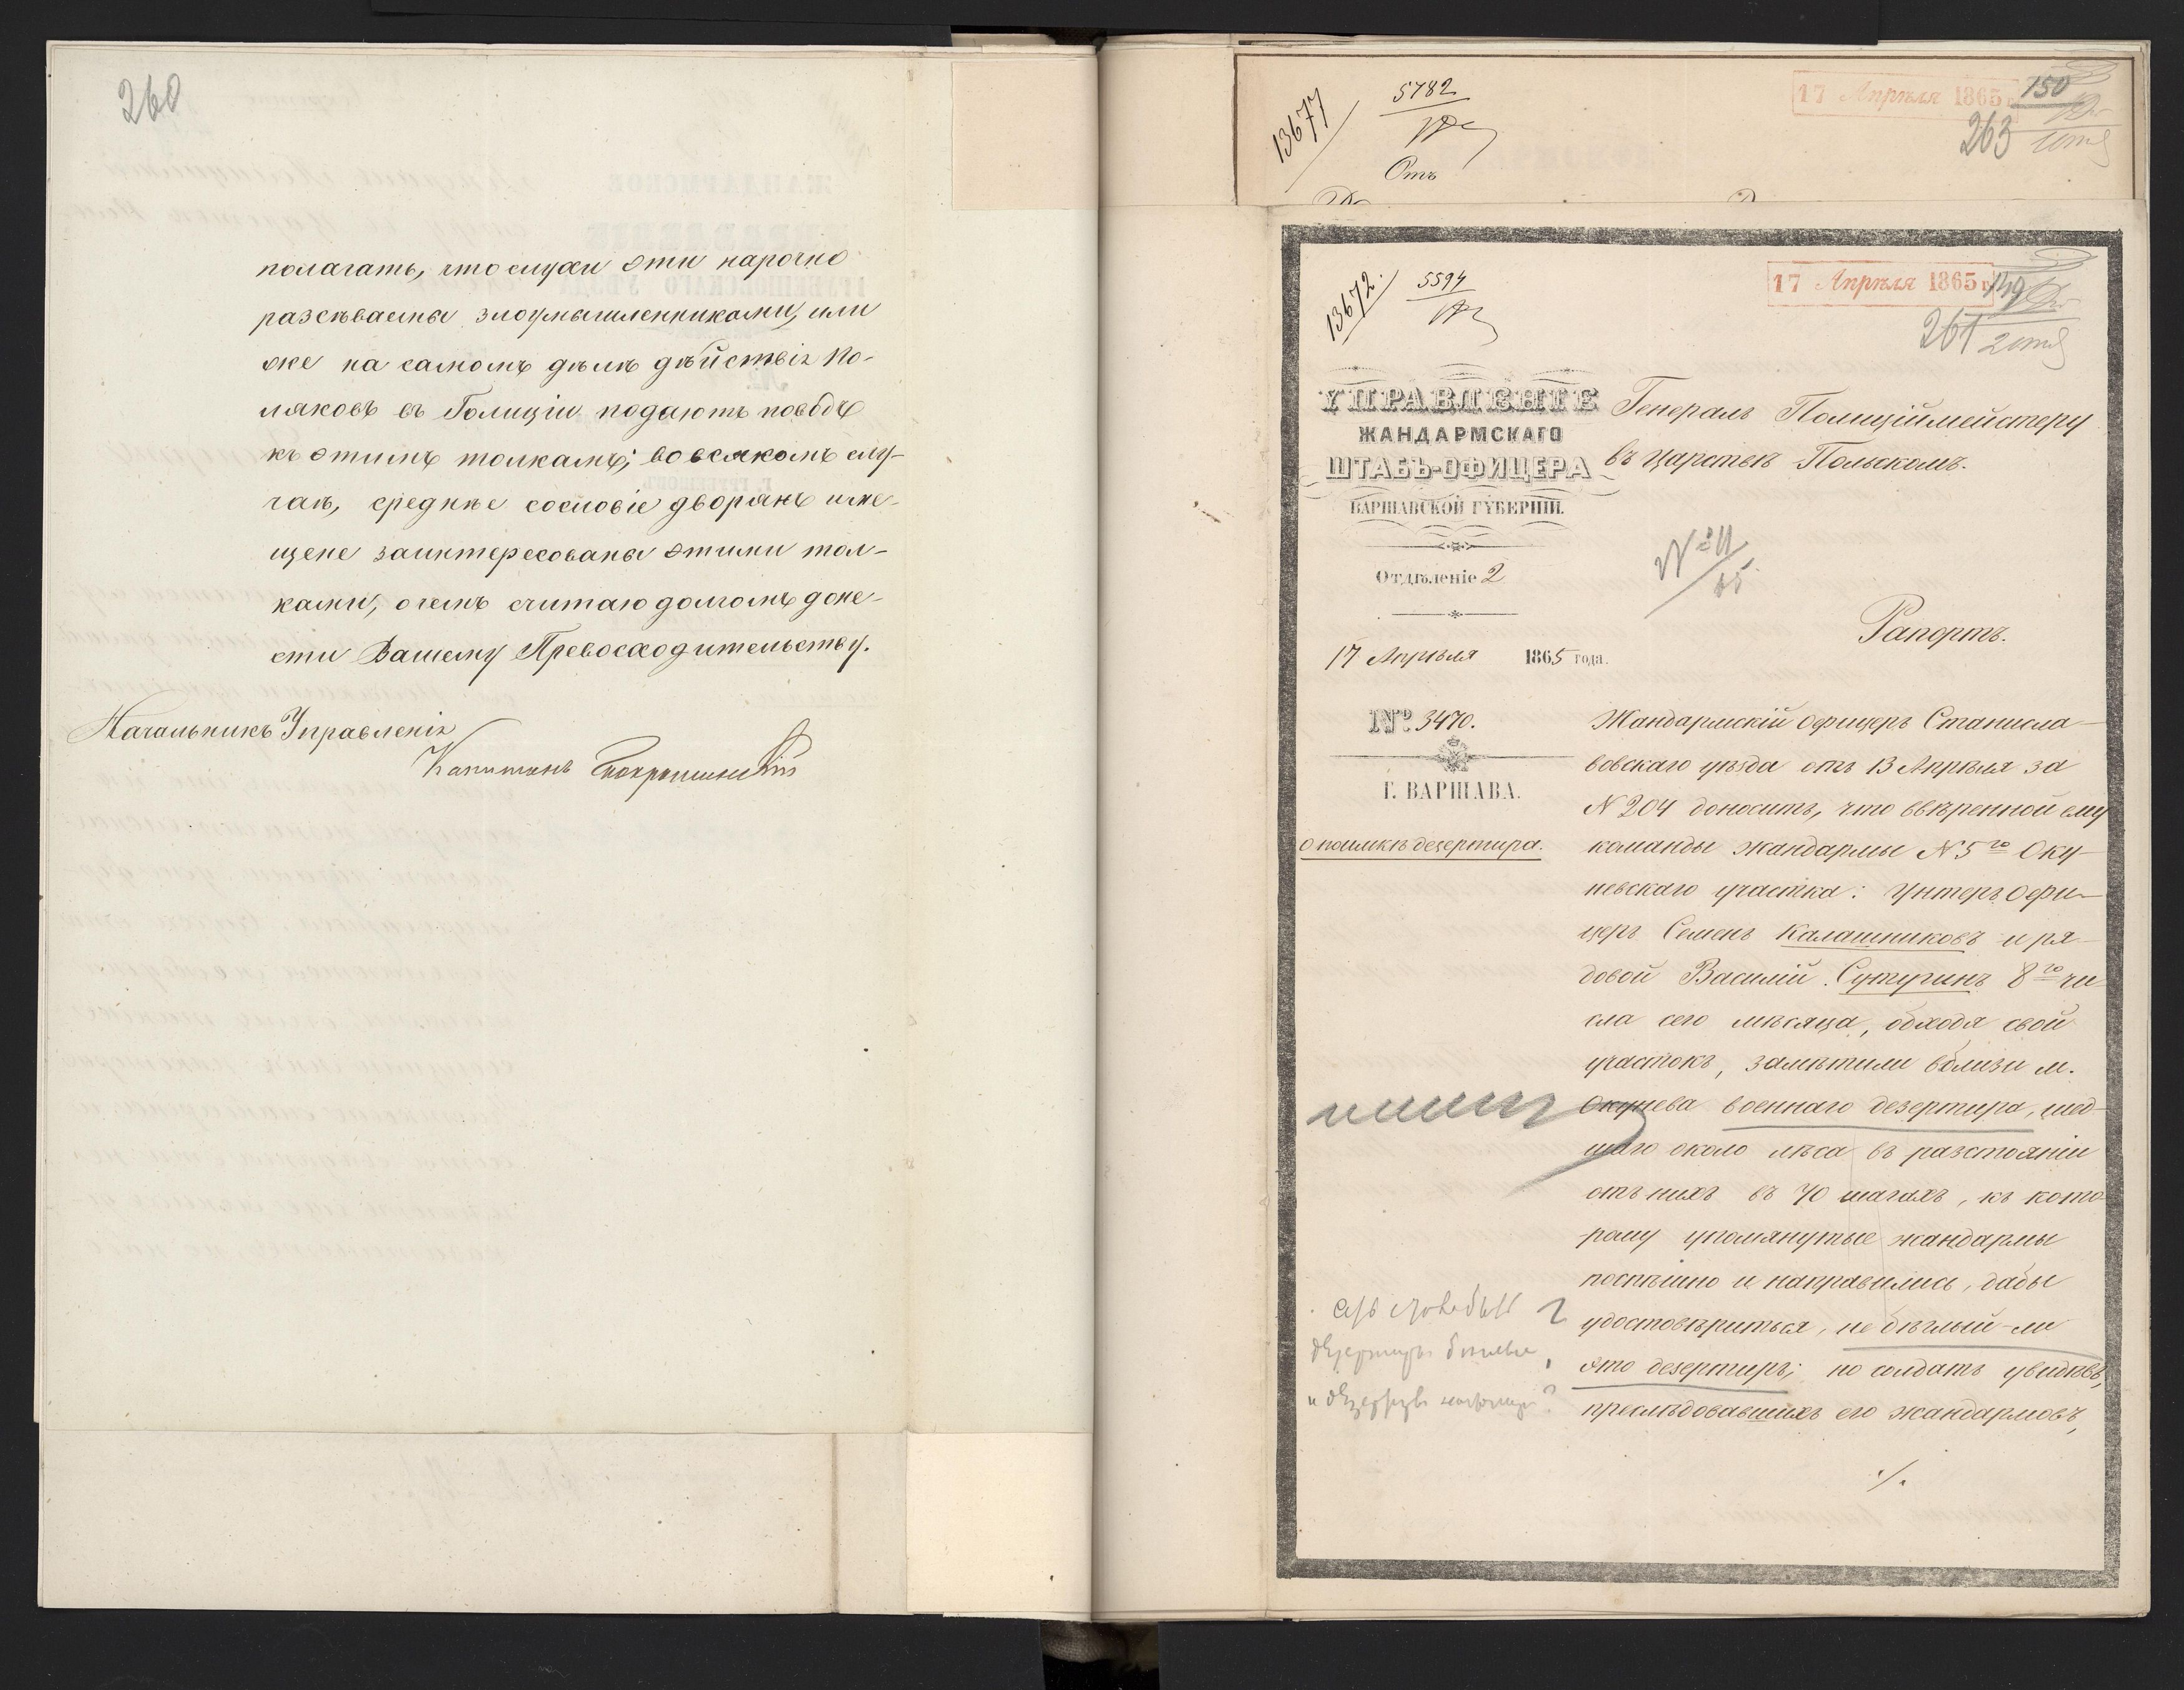 260
полагать, что слухи эти нарочно
разсѣваемы злоумышленниками, или
же на самомъ дѣлѣ дѣйствія по-
ляковъ въ Галиціи подаютъ поводъ
къ этимъ толкамъ; во всякомъ слу-
чаѣ, среднѣе сословіе дворянъ и мѣ-
щане заинтересованы этими тол-
ками, о чемъ считаю долгомъ доне-
сти Вашему Превосходительству.
Начальникъ Управленія
Капитанъ
13677
5782
Отъ
17 Апрѣля 1865 г.
150
263
13672.
5594
17 Апрѣля 1865 г.
149
261
2 отд
УПРАВЛЕНІЕ
ЖАНДАРМСКАГО
ШТАБЪ-ОФИЦЕРА
ВАРШАВСКОЙ ГУБЕРНІИ.
Отдѣленіе 2
17 Апрѣля 1865 года.
№ 3470.
Г. ВАРШАВА.
О поимкѣ дезертира.
Генералъ Полиціймейстеру
въ Царствѣ Польскомъ.
№ 11
65
Рапортъ.
Жандармскій Офицеръ Станисла-
вовскаго уѣзда отъ 13 Апрѣля за
N 204 доноситъ, что ввѣренной ему
команды жандармы N 5го Оку-
невскаго участка: Унтеръ Офи-
церъ Семенъ Калашниковъ и ря-
довой Василій Сутугинъ 8го чи-
сла сего мѣсяца, обходя свой
участокъ, замѣтили вблизи м.
Окунева военнаго дезертира, шед-
шаго около лѣса въ разстояніи
отъ нихъ въ 70 шагахъ, къ кото-
рому упомянутые жандармы
поспѣшно и направились, дабы
удостовѣриться, не бѣглый-ли
это дезертиръ; но солдатъ увидѣвъ,
преслѣдовавшихъ его жандармовъ,
./.